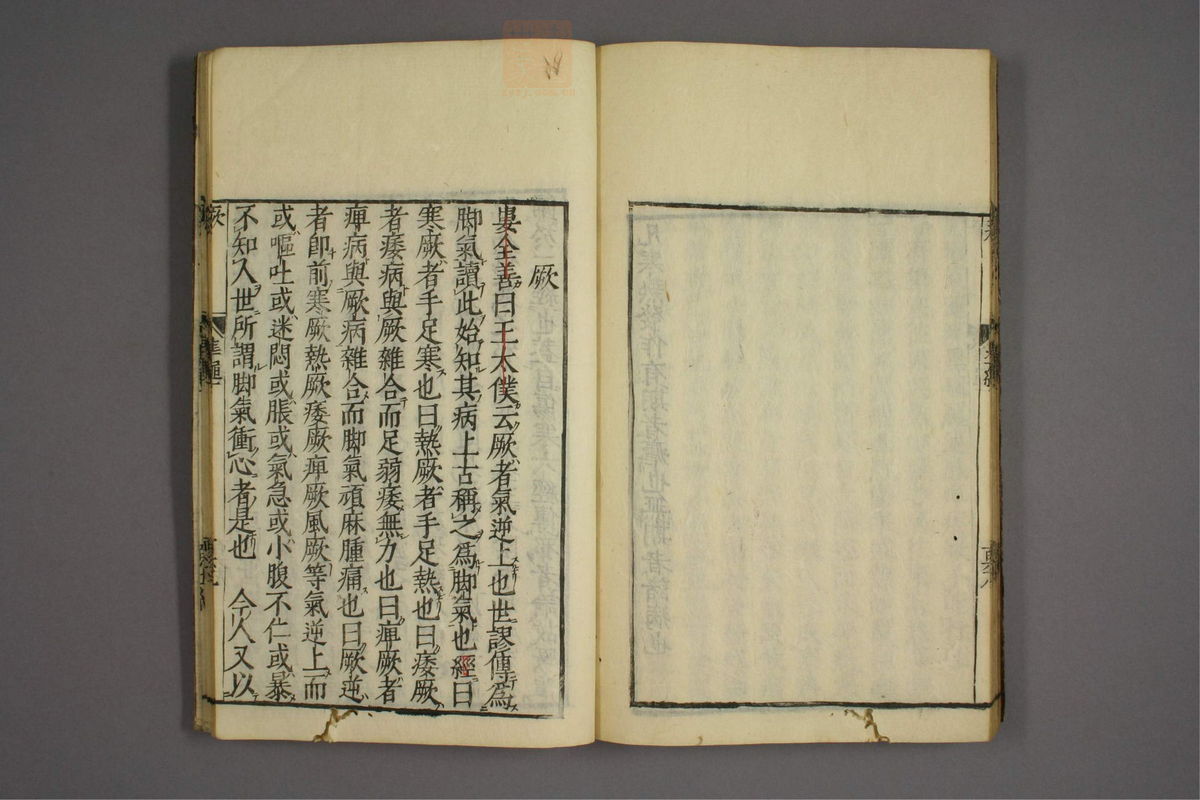 厥
婁全善曰王太僕云厥者氣逆上也世謬傳爲
脚氣讀此始知其病上古稱之爲脚氣也經曰
寒厥者手足寒也曰熱厥者手足熱也曰痿厥
者痿病與厥雜合而足弱痿無力也曰痺厥者
痺病與厥病雜合而脚氣頑麻腫痛也曰厥逆
者即前寒厥熱厥痿厥痺厥風厥等氣逆上而
或嘔吐或迷悶或脹或氣急或小腹不仁或暴
不知人世所謂脚氣衝心者是也 今人又以
厥